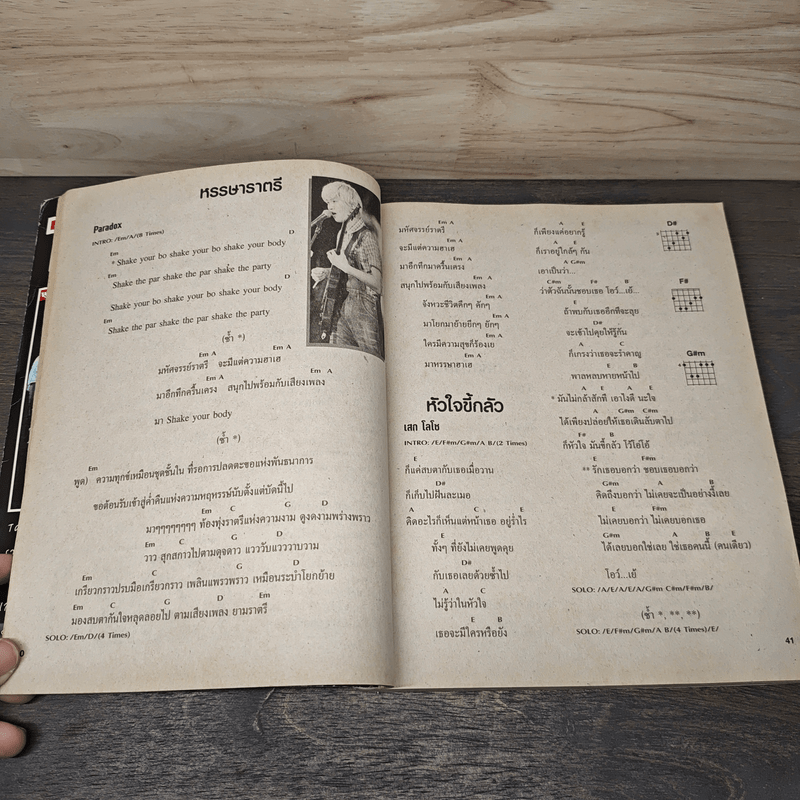 หรรษาราตรี
Paradox
INTRO: /Em/A/(8 Times)
Em D
* Shake your bo shake your bo shake your body
Em
Shake the par shake the par shake the party
D
Shake your bo shake your bo shake your body
Em
Shake the par shake the par shake the party
(ซ้ำ *)
Em A Em A
มหัศจรรย์ราตรี จะมีแต่ความฮาเฮ
Em A Em A
มาอีกทึกครื้นเครง สนุกไปพร้อมกับเสียงเพลง
มา Shake your body
(ซ้ำ *)
Em
พูด) ความทุกข์เหมือนชุดชั้นใน ที่รอการปลดตะขอแห่งพันธนาการ
ขอต้อนรับเข้าสู่ค่ำคืนแห่งความหฤหรรษ์นับตั้งแต่บัดนี้ไป
Em C G D
มาๆๆๆๆๆๆๆ ท้องทุ่งราตรีแห่งความงาม ดูงดงามพร่างพราว
Em C G D
วาว สุกสกาวไปตามดุจดาว แวววับแวววาบวาม
Em C G D
เกรียวกราวปรบมือเกรียวกราว เพลินแพรวพราว เหมือนระบำโยกย้าย
Em C G D Em
มองสบตากันใจหลุดลอยไป ตามเสียงเพลง ยามราตรี
SOLO: /Em/D/(4 Times)
0
Em A
มหัศจรรย์ราตรี
Em A
จะมีแต่ความฮาเฮ
Em A
มาอีกทึกมาครื้นเครง
Em A
สนุกไปพร้อมกับเสียงเพลง
Em A
จังหวะชีวิตดึกๆ ดักๆ
Em A
มาโยกมาย้ายยึกๆ ยักๆ
Em A
ใครมีความสุขก็ร้องเย
Em A
มาหรรษาฮาเฮ
หัวใจขี้กลัว
เสก โลโซ
INTRO: /E/F#m/G#m/A B/(2 Times)
E
ก็แค่สบตากับเธอเมื่อวาน
D#
ก็เก็บไปฝันละเมอ
A C E
คิดอะไรก็เห็นแต่หน้าเธอ อยู่ร่ำไร
E
ทั้งๆ ที่ยังไม่เคยพูดคุย
D#
กับเธอเลยด้วยซ้ำไป
A C
ไม่รู้ว่าในหัวใจ
E B
เธอจะมีใครหรือยัง
A E
ก็เพียงแค่อยากรู้
A E
ก็เราอยู่ใกล้ๆ กัน
A G#m
เอาเป็นว่า...
C#m F# B
ว่าตัวฉันนั้นชอบเธอ โอว์...เย้...
E
ถ้าพบกับเธออีกทีจะลุย
D#
จะเข้าไปคุยให้รู้กัน
A C
ก็เกรงว่าเธอจะรำคาญ
E B
พาลหลบหายหน้าไป
A E A E
* มันไม่กล้าสักที เอาไงดี นะใจ
A G#m C#m
ได้เพียงปล่อยให้เธอเดินลับตาไป
F# B
ก็หัวใจ มันขี้กลัว โว้โอ่โอ้
E F#m
** รักเธอบอกว่า ชอบเธอบอกว่า
G#m A B
คิดถึงบอกว่า ไม่เคยจะเป็นอย่างงี้เลย
E F#m
ไม่เคยบอกว่า ไม่เคยบอกเธอ
G#m A B E
ได้เลยบอกใช่เลย ใช่เธอคนนี้ (คนเดียว)
โอว์...เย้
SOLO: /A/E/A/E/A/G#m C#m/F#m/B/
(ซ้ำ *, **, **)
SOLO: /E/F#m/G#m/A B/(4 Times)/E/
D#
F#
G#m
41